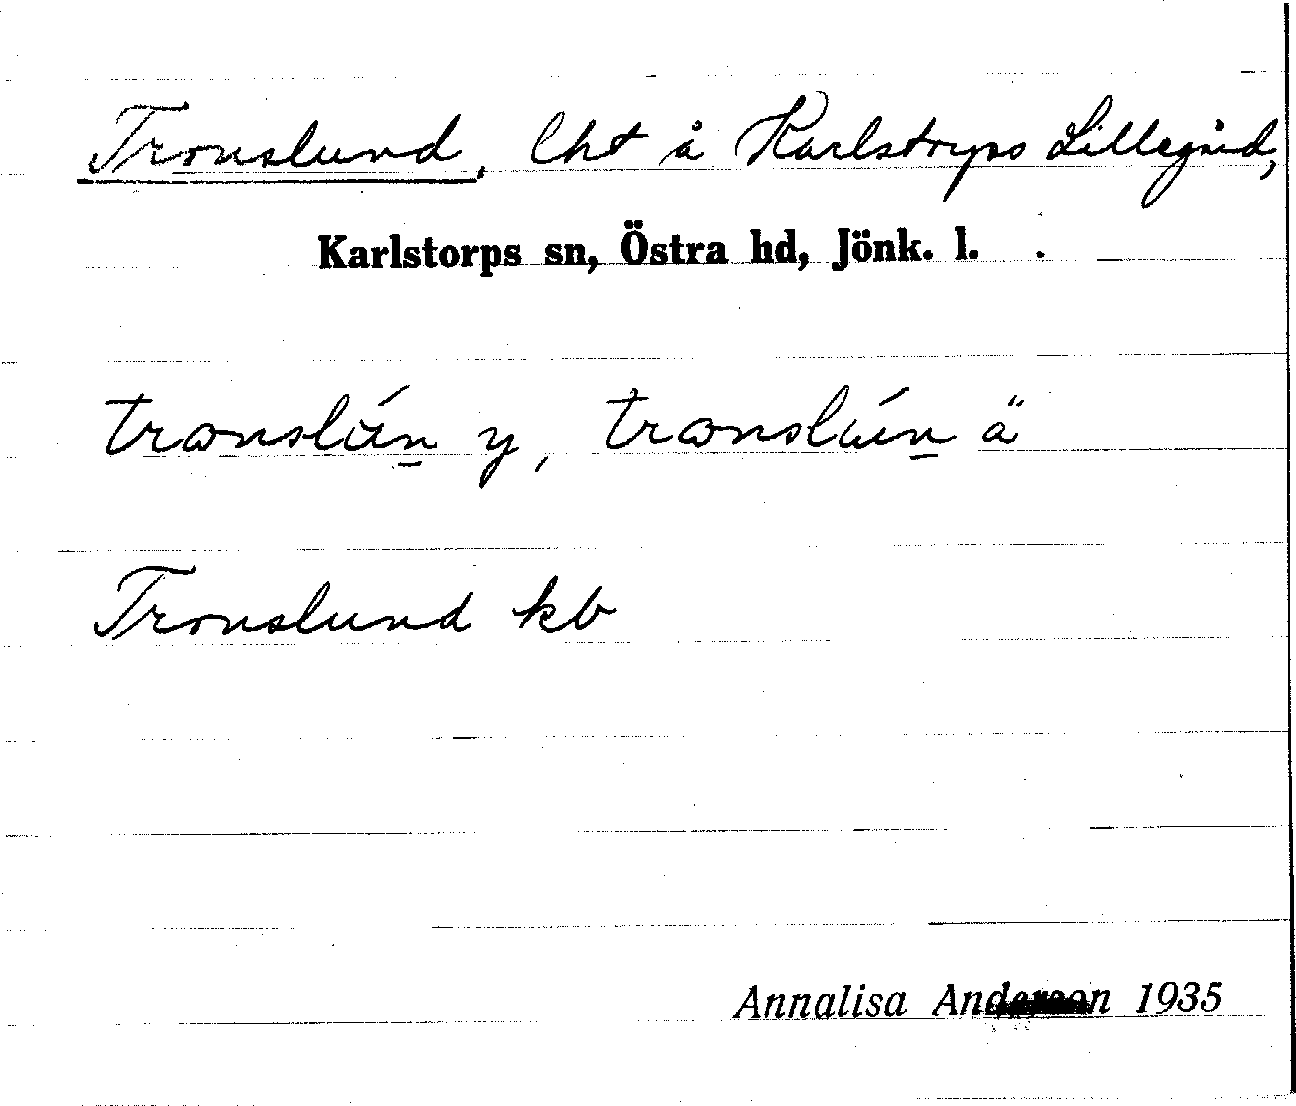 Tronslund, lht å Karlstorps Lillegård,
Karlstorps sn, Östra hd, Jönk. l.
tronslún y, tronslún ä
Tronslund kb
Annalisa Anderson 1935